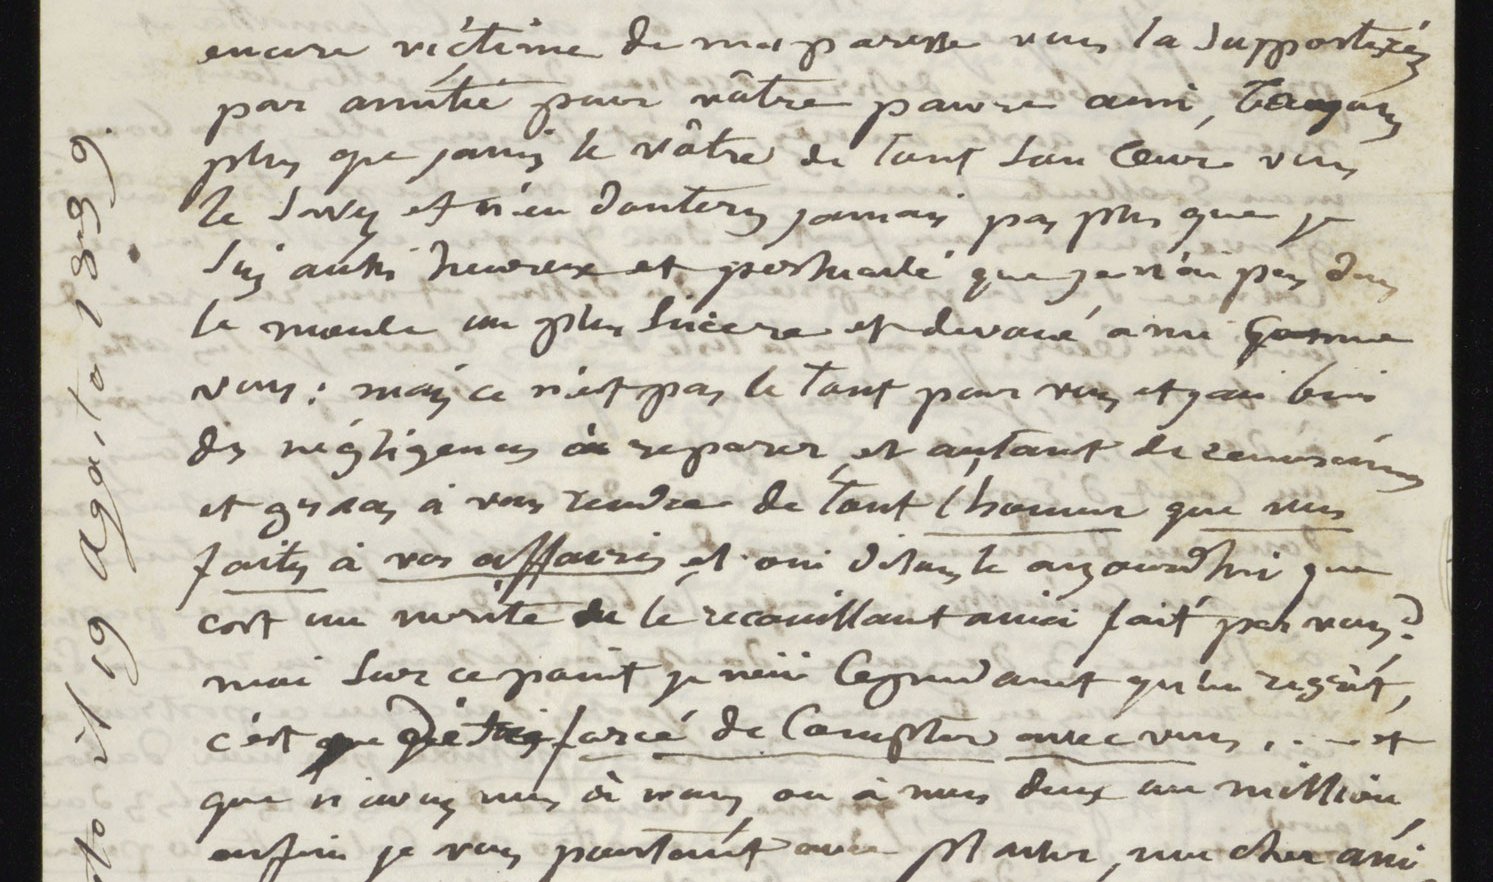 encore victime de ma paresse vous la supporterés
par amitié pour vâtre pauvre ami, toujours
plus que jamis le vâtre de tout son Cœur vous
le savez et n'en douterez jamais pas plus que je
suis aussi heureux et persuadé que je n'ai pas dans
le monde un plus sincere et devoué ami comme
vous: mais ce n'est pas le tout pour vous et j'ai bien
des négligences à reparer, et autant de
et graces à vous rendre de tout l'honneur que vous
faites à vos affaires et oui disons le aujourd'hui que
cest un merite de le ainsi fait par vous?
moi sur ce point je n'ai Cependant qu'un regrét,
c'est que forcé de Compter avec vous, .. — et
que n'avez vous à vous ou à nous deux un million
enfin je vous avec plaisir, mon cher ami,
il 19 Agosto 1839.